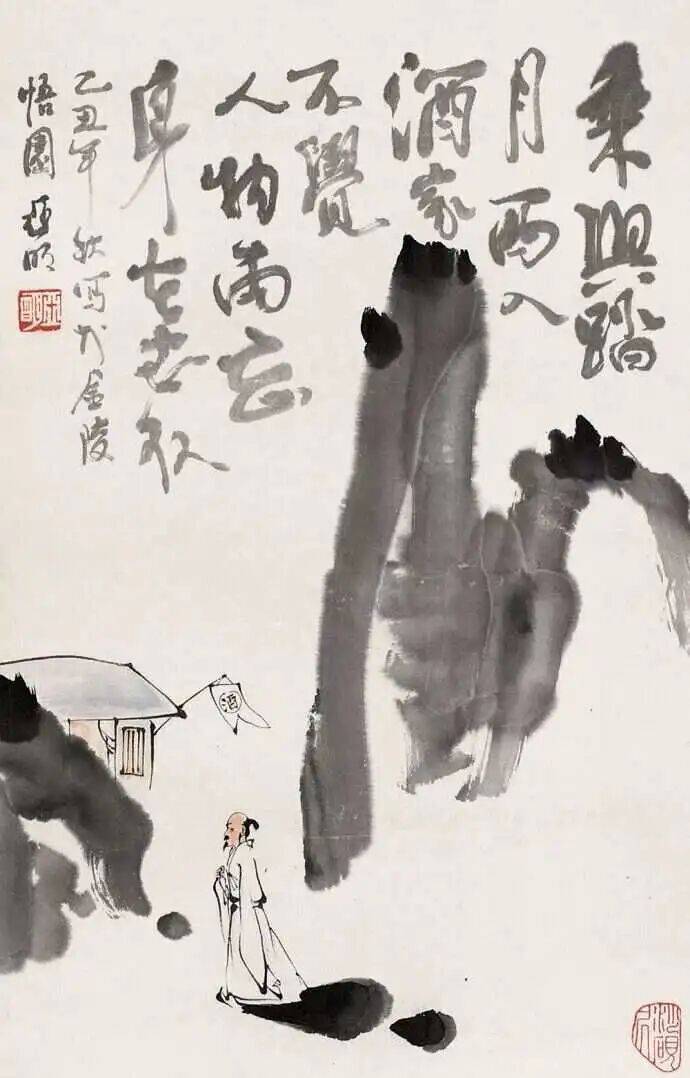 乘興踏
月西入
酒家
不覺
人物兩忘
身在世外
乙丑年秋写於金陵
悟園 亞明
酒